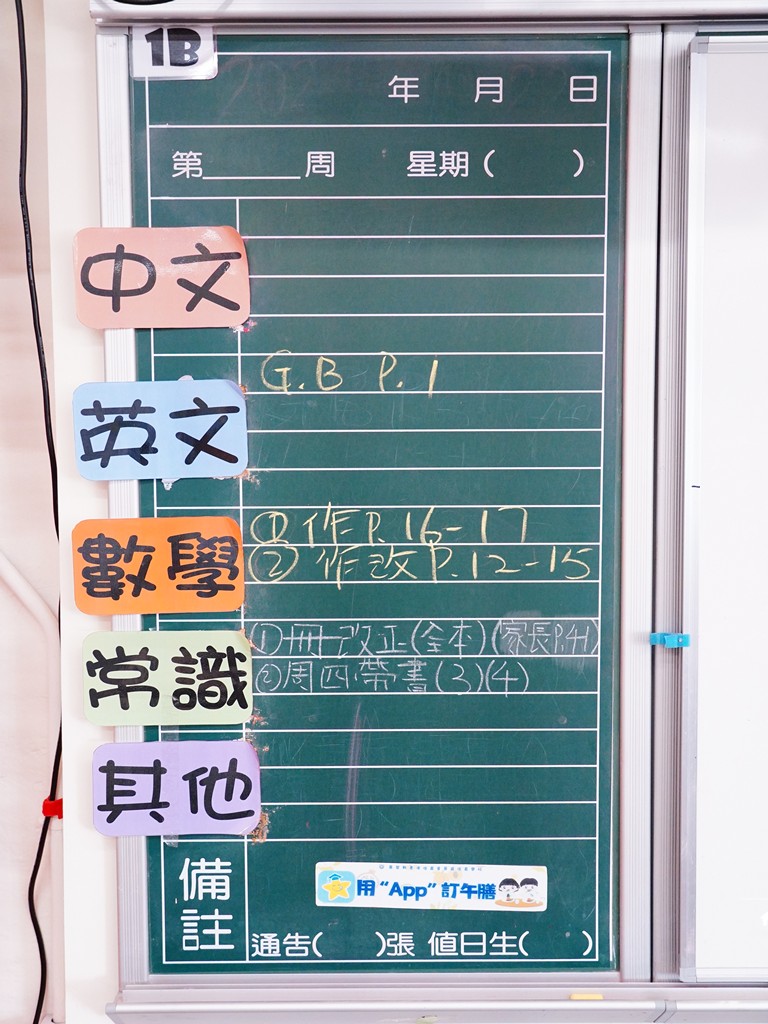 1B
年 月 日
第______周 星期( )
中文
G.B P.1
英文
數學
① 作P.16-17
② 作改P.12-15
常識
① 冊改正(全本)(家長P.41)
② 周四帶書(3)(4)
其他
備註
用 “App” 訂午膳
通告( )張 值日生( )